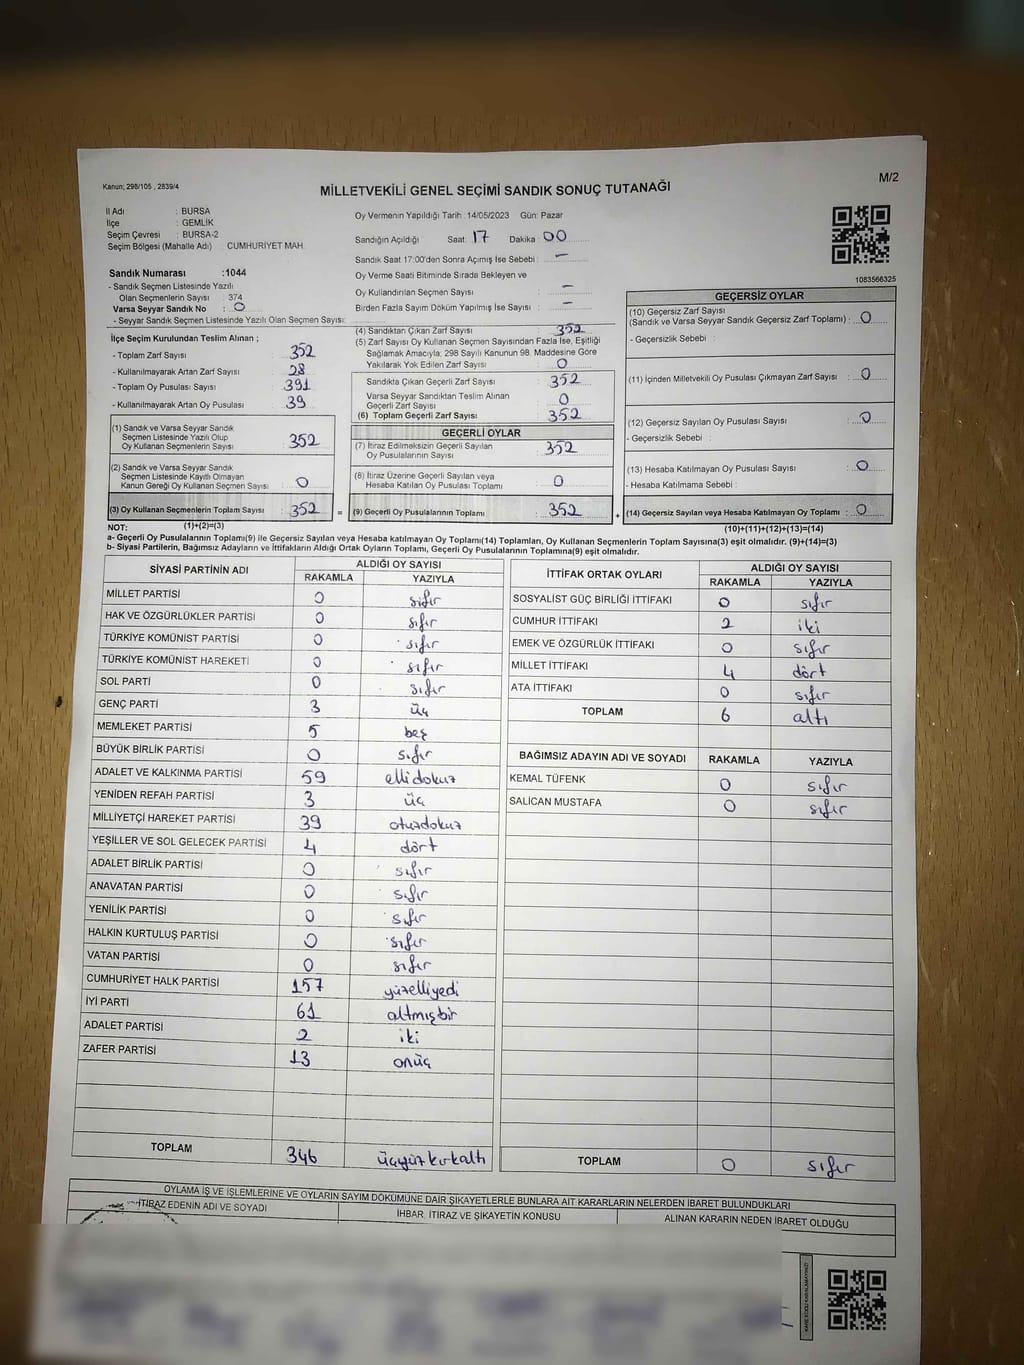 Kanun; 298/105 , 2839/4
MİLLETVEKİLİ GENEL SEÇİMİ SANDIK SONUÇ TUTANAĞI
M/2
İl Adı : BURSA
İlçe : GEMLİK
Seçim Çevresi : BURSA-2
Seçim Bölgesi (Mahalle Adı) CUMHURİYET MAH.
Oy Vermenin Yapıldığı Tarih :14/05/2023 Gün: Pazar
Sandığın Açıldığı Saat: 17 Dakika : 00
Sandık Saat 17:00'den Sonra Açımış İse Sebebi : –
Oy Verme Saati Bitiminde Sırada Bekleyen ve
Oy Kullandırılan Seçmen Sayısı : –
Birden Fazla Sayım Döküm Yapılmış İse Sayısı : –
1083566325
Sandık Numarası :1044
- Sandık Seçmen Listesinde Yazılı
Olan Seçmenlerin Sayısı : 374
Varsa Seyyar Sandık No : 0
- Seyyar Sandık Seçmen Listesinde Yazılı Olan Seçmen Sayısı:
İlçe Seçim Kurulundan Teslim Alınan ;
- Toplam Zarf Sayısı : 352
- Kullanılmayarak Artan Zarf Sayısı : 28
- Toplam Oy Pusulası Sayısı : 391
- Kullanılmayarak Artan Oy Pusulası : 39
(1) Sandık ve Varsa Seyyar Sandık
Seçmen Listesinde Yazılı Olup
Oy Kullanan Seçmenlerin Sayısı : 352
(2) Sandık ve Varsa Seyyar Sandık
Seçmen Listesinde Kayıtlı Olmayan
Kanun Gereği Oy Kullanan Seçmen Sayısı : 0
(3) Oy Kullanan Seçmenlerin Toplam Sayısı : 352 =
(4) Sandıktan Çıkan Zarf Sayısı : 352
(5) Zarf Sayısı Oy Kullanan Seçmen Sayısından Fazla İse, Eşitliği
Sağlamak Amacıyla; 298 Sayılı Kanunun 98. Maddesine Göre
Yakılarak Yok Edilen Zarf Sayısı : 0
Sandıkta Çıkan Geçerli Zarf Sayısı : 352
Varsa Seyyar Sandıktan Teslim Alınan
Geçerli Zarf Sayısı : 0
(6) Toplam Geçerli Zarf Sayısı : 352
GEÇERLİ OYLAR
(7) İtiraz Edilmeksizin Geçerli Sayılan
Oy Pusulalarının Sayısı : 352
(8) İtiraz Üzerine Geçerli Sayılan veya
Hesaba Katılan Oy Pusulası Toplamı : 0
(9) Geçerli Oy Pusulalarının Toplamı : 352 +
GEÇERSİZ OYLAR
(10) Geçersiz Zarf Sayısı
(Sandık ve Varsa Seyyar Sandık Geçersiz Zarf Toplamı) : 0
- Geçersizlik Sebebi :
(11) İçinden Milletvekili Oy Pusulası Çıkmayan Zarf Sayısı : 0
(12) Geçersiz Sayılan Oy Pusulası Sayısı : 0
- Geçersizlik Sebebi :
(13) Hesaba Katılmayan Oy Pusulası Sayısı : 0
- Hesaba Katılmama Sebebi :
(14) Geçersiz Sayılan veya Hesaba Katılmayan Oy Toplamı : 0
NOT: (1)+(2)=(3) (10)+(11)+(12)+(13)=(14)
a- Geçerli Oy Pusulalarının Toplamı(9) ile Geçersiz Sayılan veya Hesaba katılmayan Oy Toplamı(14) Toplamları, Oy Kullanan Seçmenlerin Toplam Sayısına(3) eşit olmalıdır. (9)+(14)=(3)
b- Siyasi Partilerin, Bağımsız Adayların ve İttifakların Aldığı Ortak Oyların Toplamı, Geçerli Oy Pusulalarının Toplamına(9) eşit olmalıdır.
SİYASİ PARTİNİN ADI ALDIĞI OY SAYISI
RAKAMLA YAZIYLA
MİLLET PARTİSİ 0 sıfır
HAK VE ÖZGÜRLÜKLER PARTİSİ 0 sıfır
TÜRKİYE KOMÜNİST PARTİSİ 0 sıfır
TÜRKİYE KOMÜNİST HAREKETİ 0 sıfır
SOL PARTİ 0 sıfır
GENÇ PARTİ 3 üç
MEMLEKET PARTİSİ 5 beş
BÜYÜK BİRLİK PARTİSİ 0 sıfır
ADALET VE KALKINMA PARTİSİ 59 ellidokuz
YENİDEN REFAH PARTİSİ 3 üç
MİLLİYETÇİ HAREKET PARTİSİ 39 otuzdokuz
YEŞİLLER VE SOL GELECEK PARTİSİ 4 dört
ADALET BİRLİK PARTİSİ 0 sıfır
ANAVATAN PARTİSİ 0 sıfır
YENİLİK PARTİSİ 0 sıfır
HALKIN KURTULUŞ PARTİSİ 0 sıfır
VATAN PARTİSİ 0 sıfır
CUMHURİYET HALK PARTİSİ 157 yüzelliyedi
İYİ PARTİ 61 altmışbir
ADALET PARTİSİ 2 iki
ZAFER PARTİSİ 13 onüç
TOPLAM 346 üçyüzkırkaltı
İTTİFAK ORTAK OYLARI ALDIĞI OY SAYISI
RAKAMLA YAZIYLA
SOSYALİST GÜÇ BİRLİĞİ İTTİFAKI 0 sıfır
CUMHUR İTTİFAKI 2 iki
EMEK VE ÖZGÜRLÜK İTTİFAKI 0 sıfır
MİLLET İTTİFAKI 4 dört
ATA İTTİFAKI 0 sıfır
TOPLAM 6 altı
BAĞIMSIZ ADAYIN ADI VE SOYADI RAKAMLA YAZIYLA
KEMAL TÜFENK 0 sıfır
SALİCAN MUSTAFA 0 sıfır
TOPLAM 0 sıfır
OYLAMA İŞ VE İŞLEMLERİNE VE OYLARIN SAYIM DÖKÜMÜNE DAİR ŞİKAYETLERLE BUNLARA AİT KARARLARIN NELERDEN İBARET BULUNDUKLARI
İTİRAZ EDENİN ADI VE SOYADI İHBAR, İTİRAZ VE ŞİKAYETİN KONUSU ALINAN KARARIN NEDEN İBARET OLDUĞU
KARE KODU KARALAMAYINIZ!